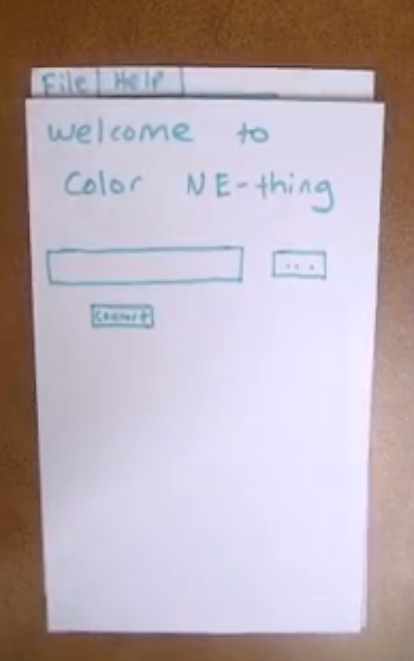 File Help
Welcome to
Color NE-thing
...
Convert